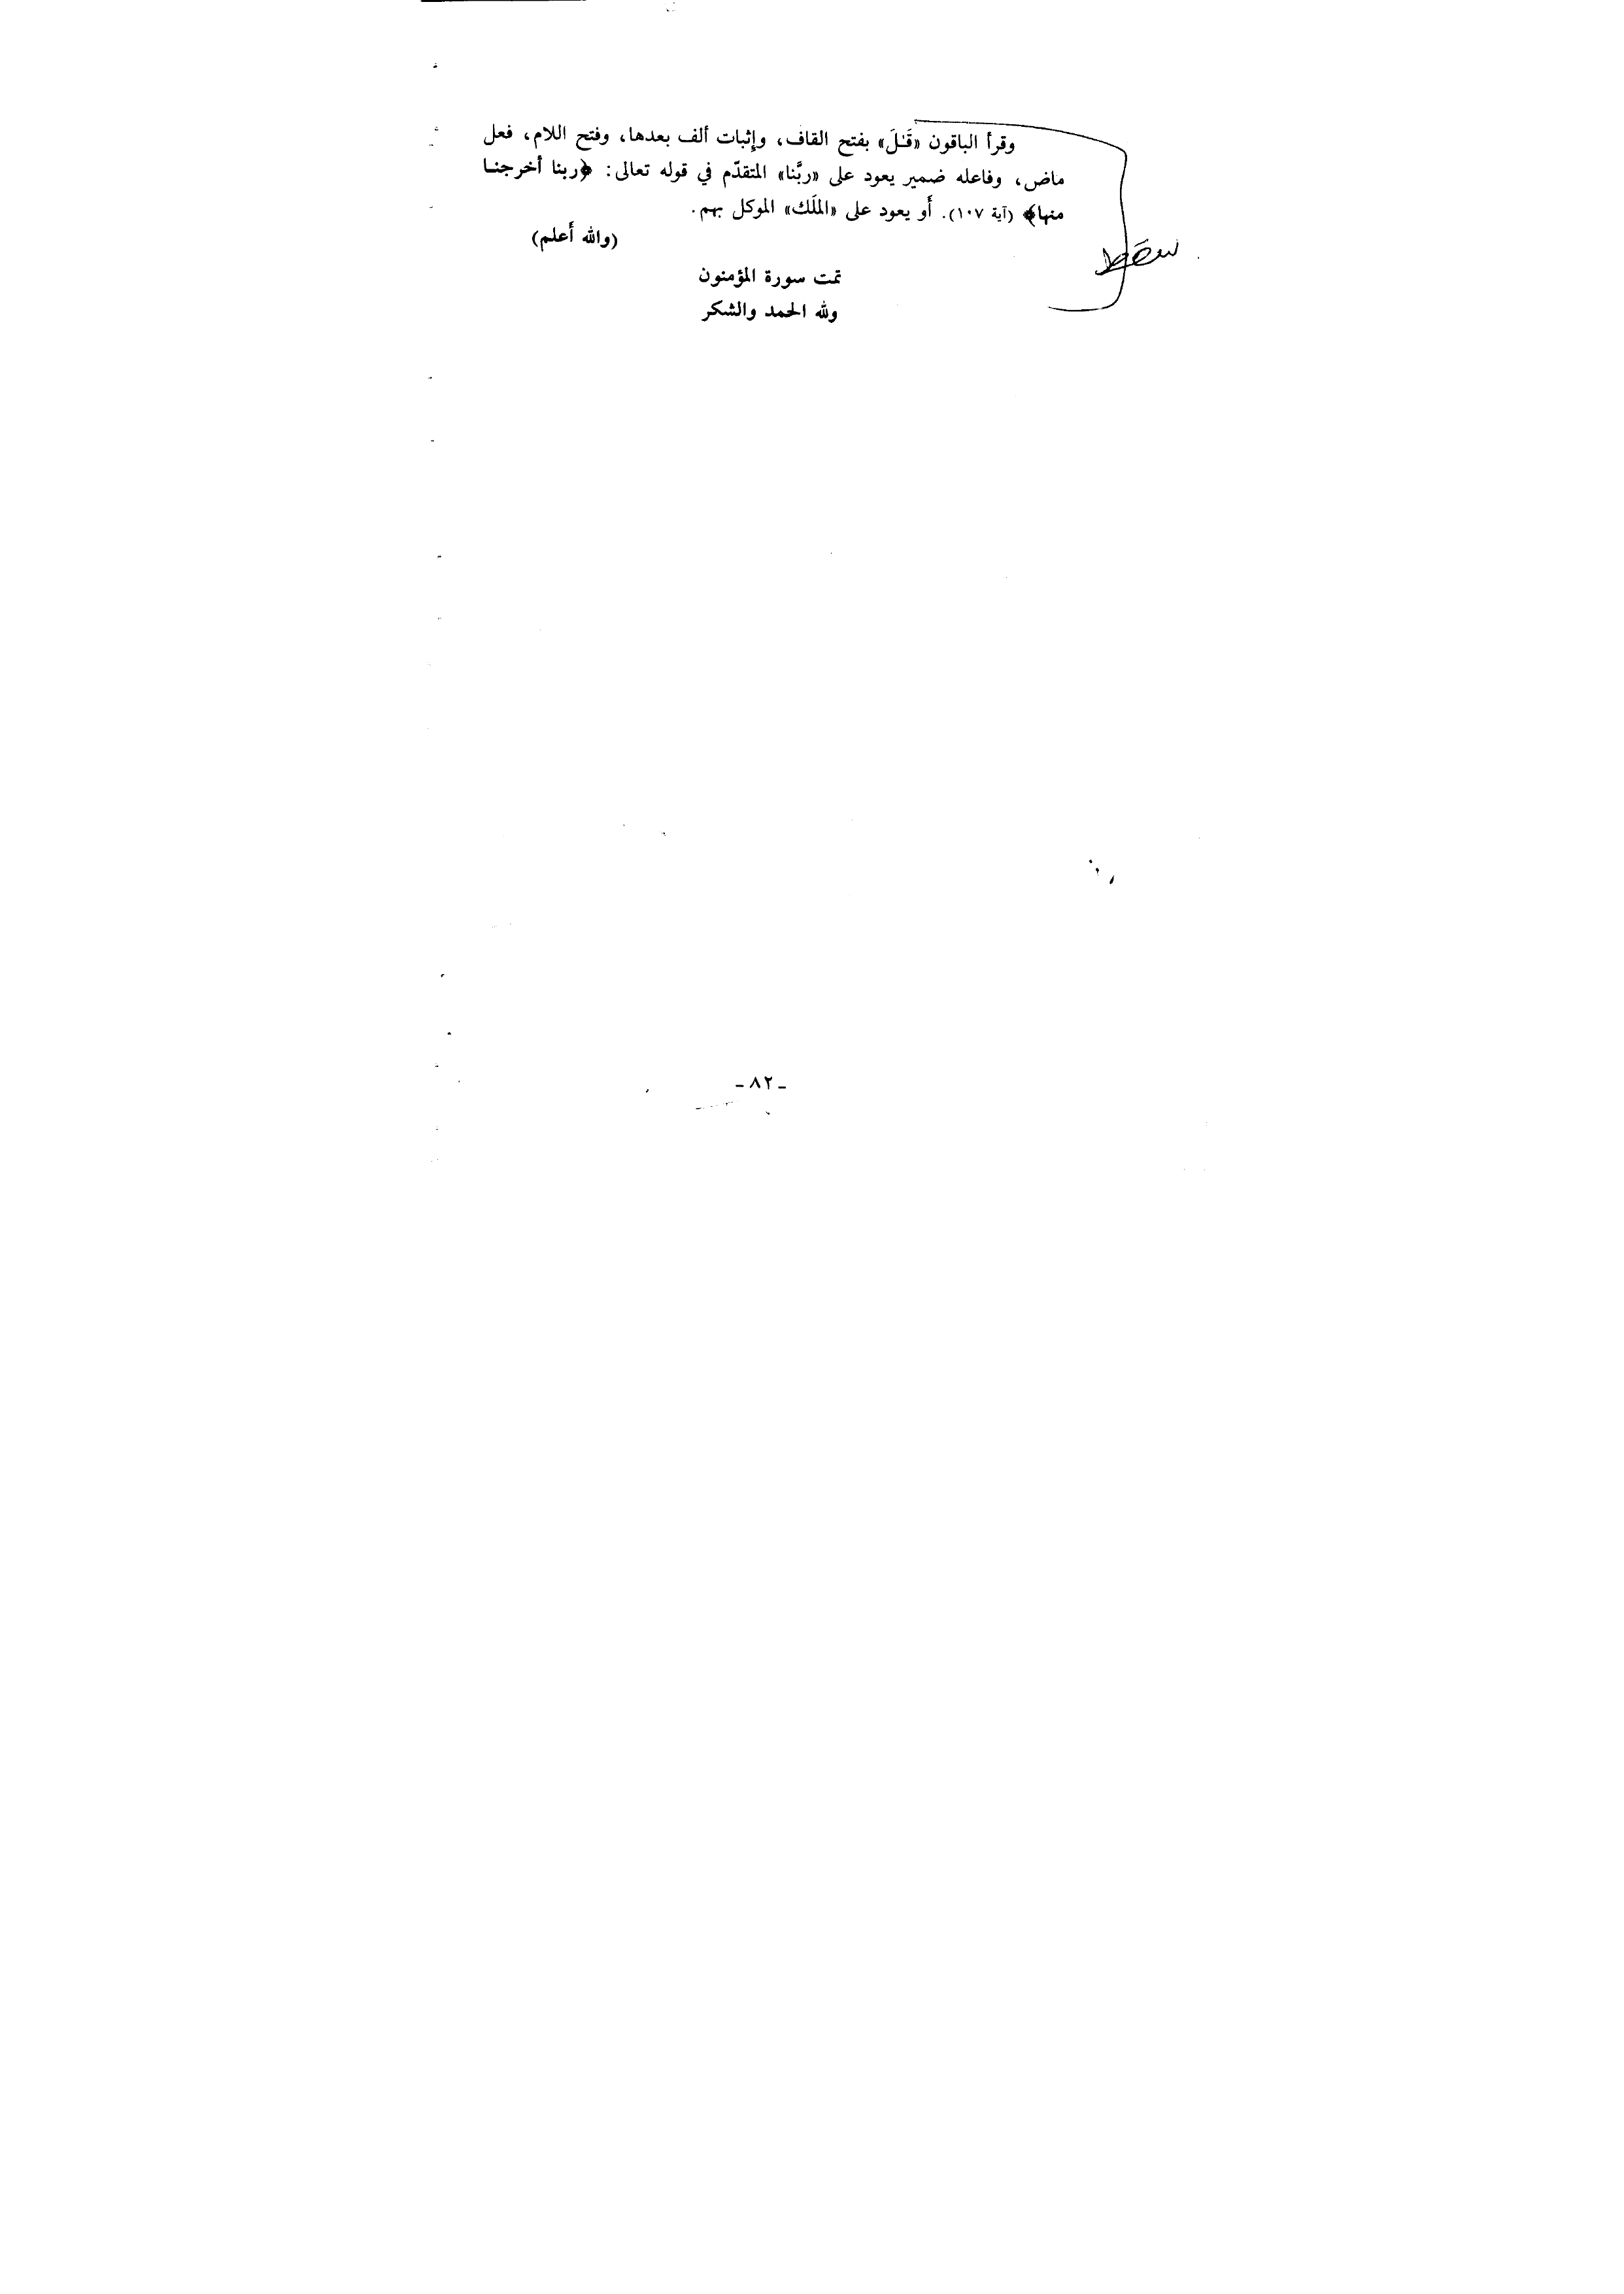 وقرأ الباقون «قَـٰلَ» بفتح القاف، وإثبات ألف بعدها، وفتح اللام، فعل
ماض، وفاعله ضمير يعود على «ربَّنا» المتقدّم في قوله تعالى: ﴿ربنا أخرجنـا
منها﴾ (آية ١٠٧). أَو يعود على «الملَك» الموكل بهم.
(والله أَعلم)
سقط
تمت سورة المؤمنون
ولله الحمد والشكر
ـ ٨٢ ـ